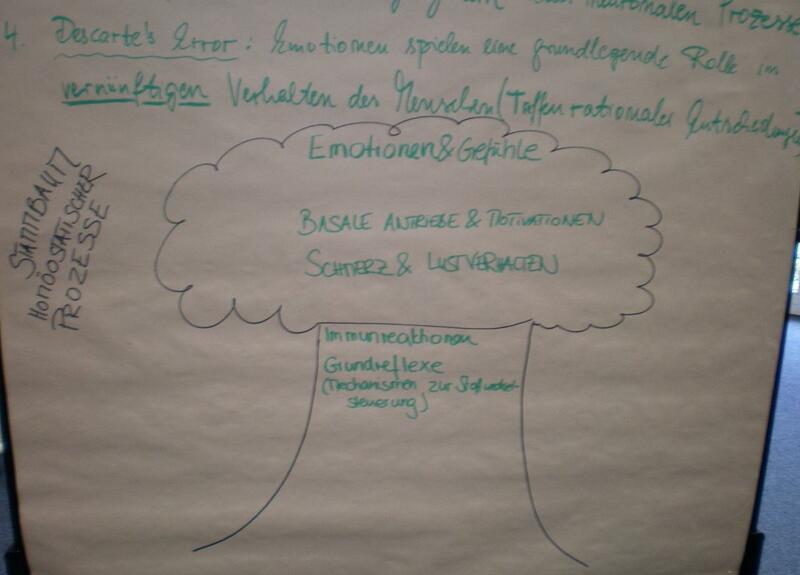 neuronalen Prozesse
4. Descarte's Error: Emotionen spielen eine grundlegende Rolle im
vernünftigen Verhalten des Menschen (Treffen rationaler Entscheidungen)
STAMMBAUM
HOMÖOSTATISCHER
PROZESSE
Emotionen & Gefühle
BASALE ANTRIEBE & MOTIVATIONEN
SCHMERZ & LUSTVERHALTEN
Immunreaktionen
Grundreflexe
(Mechanismen zur Stoffwechsel-
steuerung)